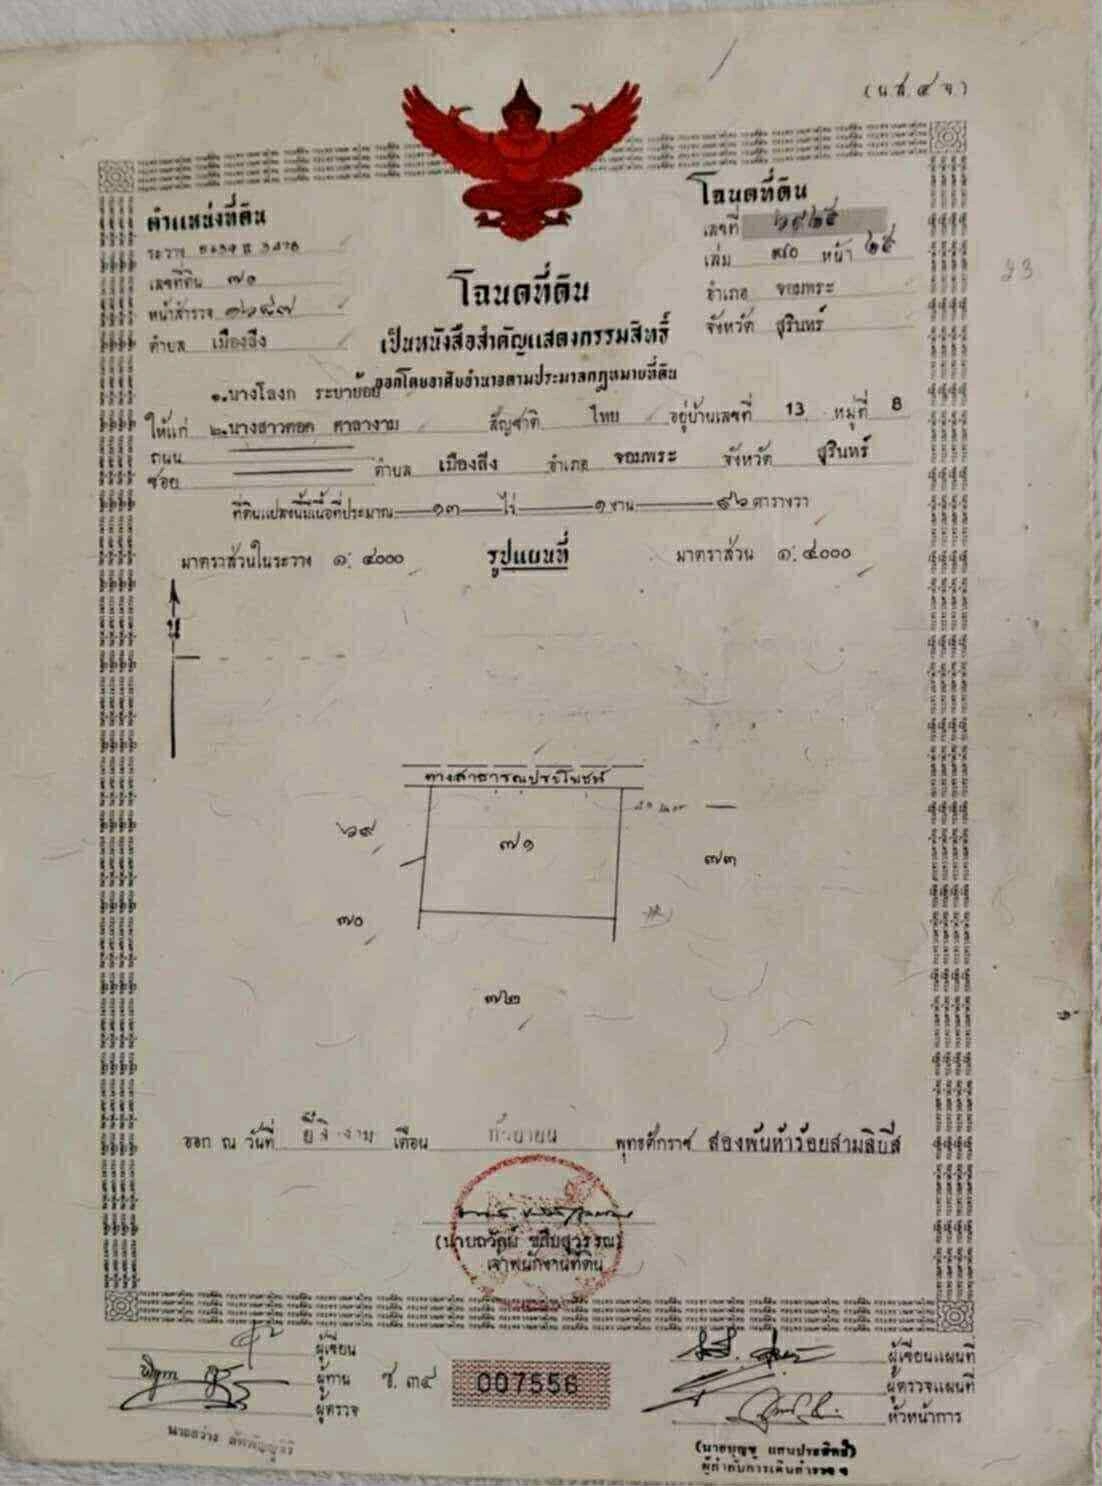 (น.ส.๔ จ.)
ตำแหน่งที่ดิน
ระวาง
เลขที่ดิน ๗๑
หน้าสำรวจ
ตำบล เมืองลีง
โฉนดที่ดิน
เลขที่ ๖๙๒๕
เล่ม ๗๐ หน้า ๒๕
อำเภอ จอมพระ
จังหวัด สุรินทร์
23
โฉนดที่ดิน
เป็นหนังสือสำคัญแสดงกรรมสิทธิ์
ออกโดยอาศัยอำนาจตามประมวลกฎหมายที่ดิน
๑.นางโลงก ระบาย้อย
ให้แก่ ๒.นางสาวคอด ศาลางาม สัญชาติ ไทย อยู่บ้านเลขที่ 13 หมู่ที่ 8
ถนน
ซอย ตำบล เมืองลีง อำเภอ จอมพระ จังหวัด สุรินทร์
ที่ดินแปลงนี้มีเนื้อที่ประมาณ ๑๓ ไร่ ๑ งาน ๙๖ ตารางวา
มาตราส่วนในระวาง ๑: ๔๐๐๐ รูปแผนที่ มาตราส่วน ๑: ๔๐๐๐
น
ทางสาธารณประโยชน์
๖๙
๗๑
๗๓
๗๐
๗๒
ออก ณ วันที่ เดือน กันยายน พุทธศักราช สองพันห้าร้อยสามสิบสี่
(นายถวัลย์ ชลืบสุวรรณ)
เจ้าพนักงานที่ดิน
ผู้เขียน
ผู้ทาน
ผู้ตรวจ
ช. ๓๔
007556
ผู้เขียนแผนที่
ผู้ตรวจแผนที่
หัวหน้าการ
(นายบุญชู แสนประสิทธิ์)